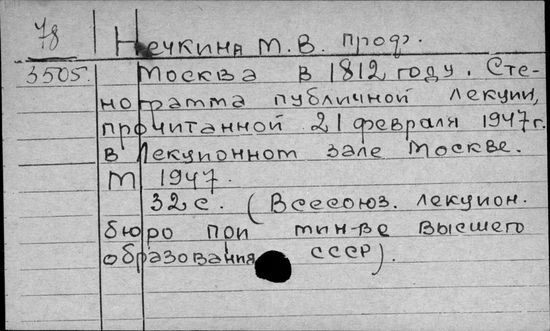 78 Нечкина М. В. проф.
3505. Москва в 1812 году. Сте-
нограмма публичной лекции,
прочитанной 21 февраля 1947 г.
в Лекционном зале Москве.
М 1947.
32 с. (Всесоюз. лекцион.
бюро при мин-ве высшего
образования СССР).